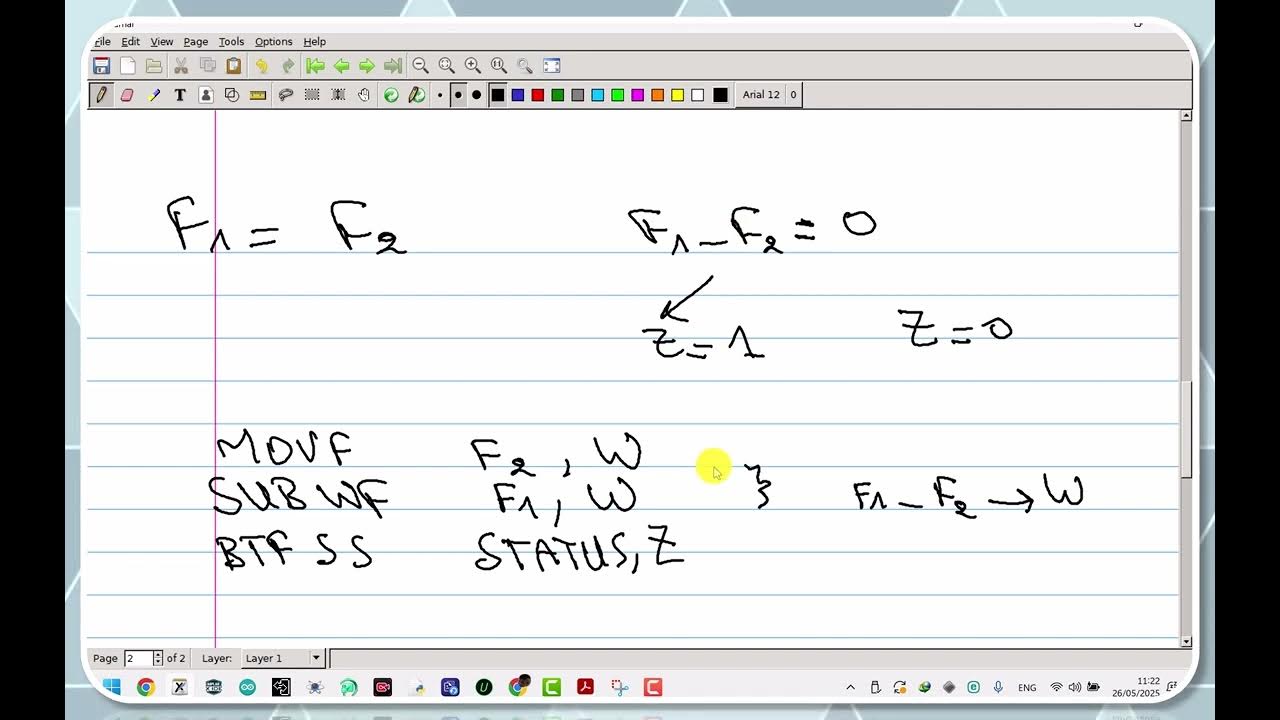 File Edit View Page Tools Options Help
Arial 12 0
F1 = F2 F1 - F2 = 0
Z = 1 Z = 0
MOVF F2, W
SUBWF F1, W } F1 - F2 → W
BTFSS STATUS, Z
Page 2 of 2 Layer: Layer 1
ENG 11:22
26/05/2025